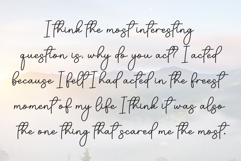 I think the most interesting
question is, why do you act? I acted
because I felt I had acted in the freest
moment of my life I think it was also
the one thing that scared me the most.